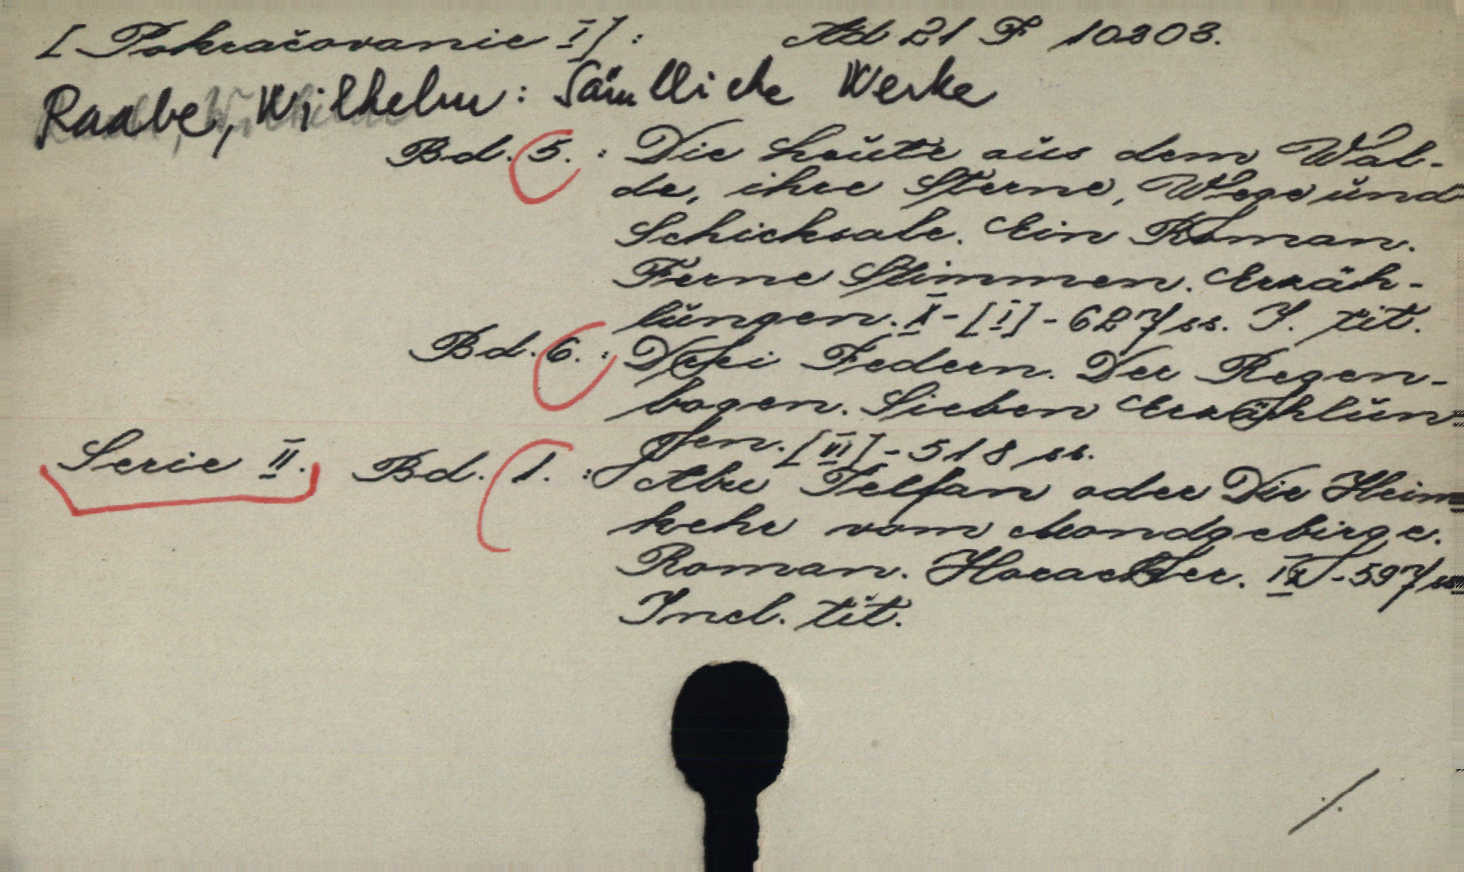 [Pokračovanie I]: Ad 21 F 10303.
Raabe, Wilhelm: Sämtliche Werke
Bd. 5. : Die Leute aus dem Wal-
de, ihre Sterne, Wege und
Schicksale. Ein Roman.
Ferne Stimmen. Erzäh-
lungen. X-[I]-627 ss. I. tit.
Bd. 6. : Drei Federn. Der Regen-
bogen. Sieben Erzählun-
gen. [VI]-518 ss.
Serie II. Bd. 1. : Abu Telfan oder Die Heim-
kehr vom Mondgebirge.
Roman. Horacker. IX-597 ss
Incl. tit.
./.